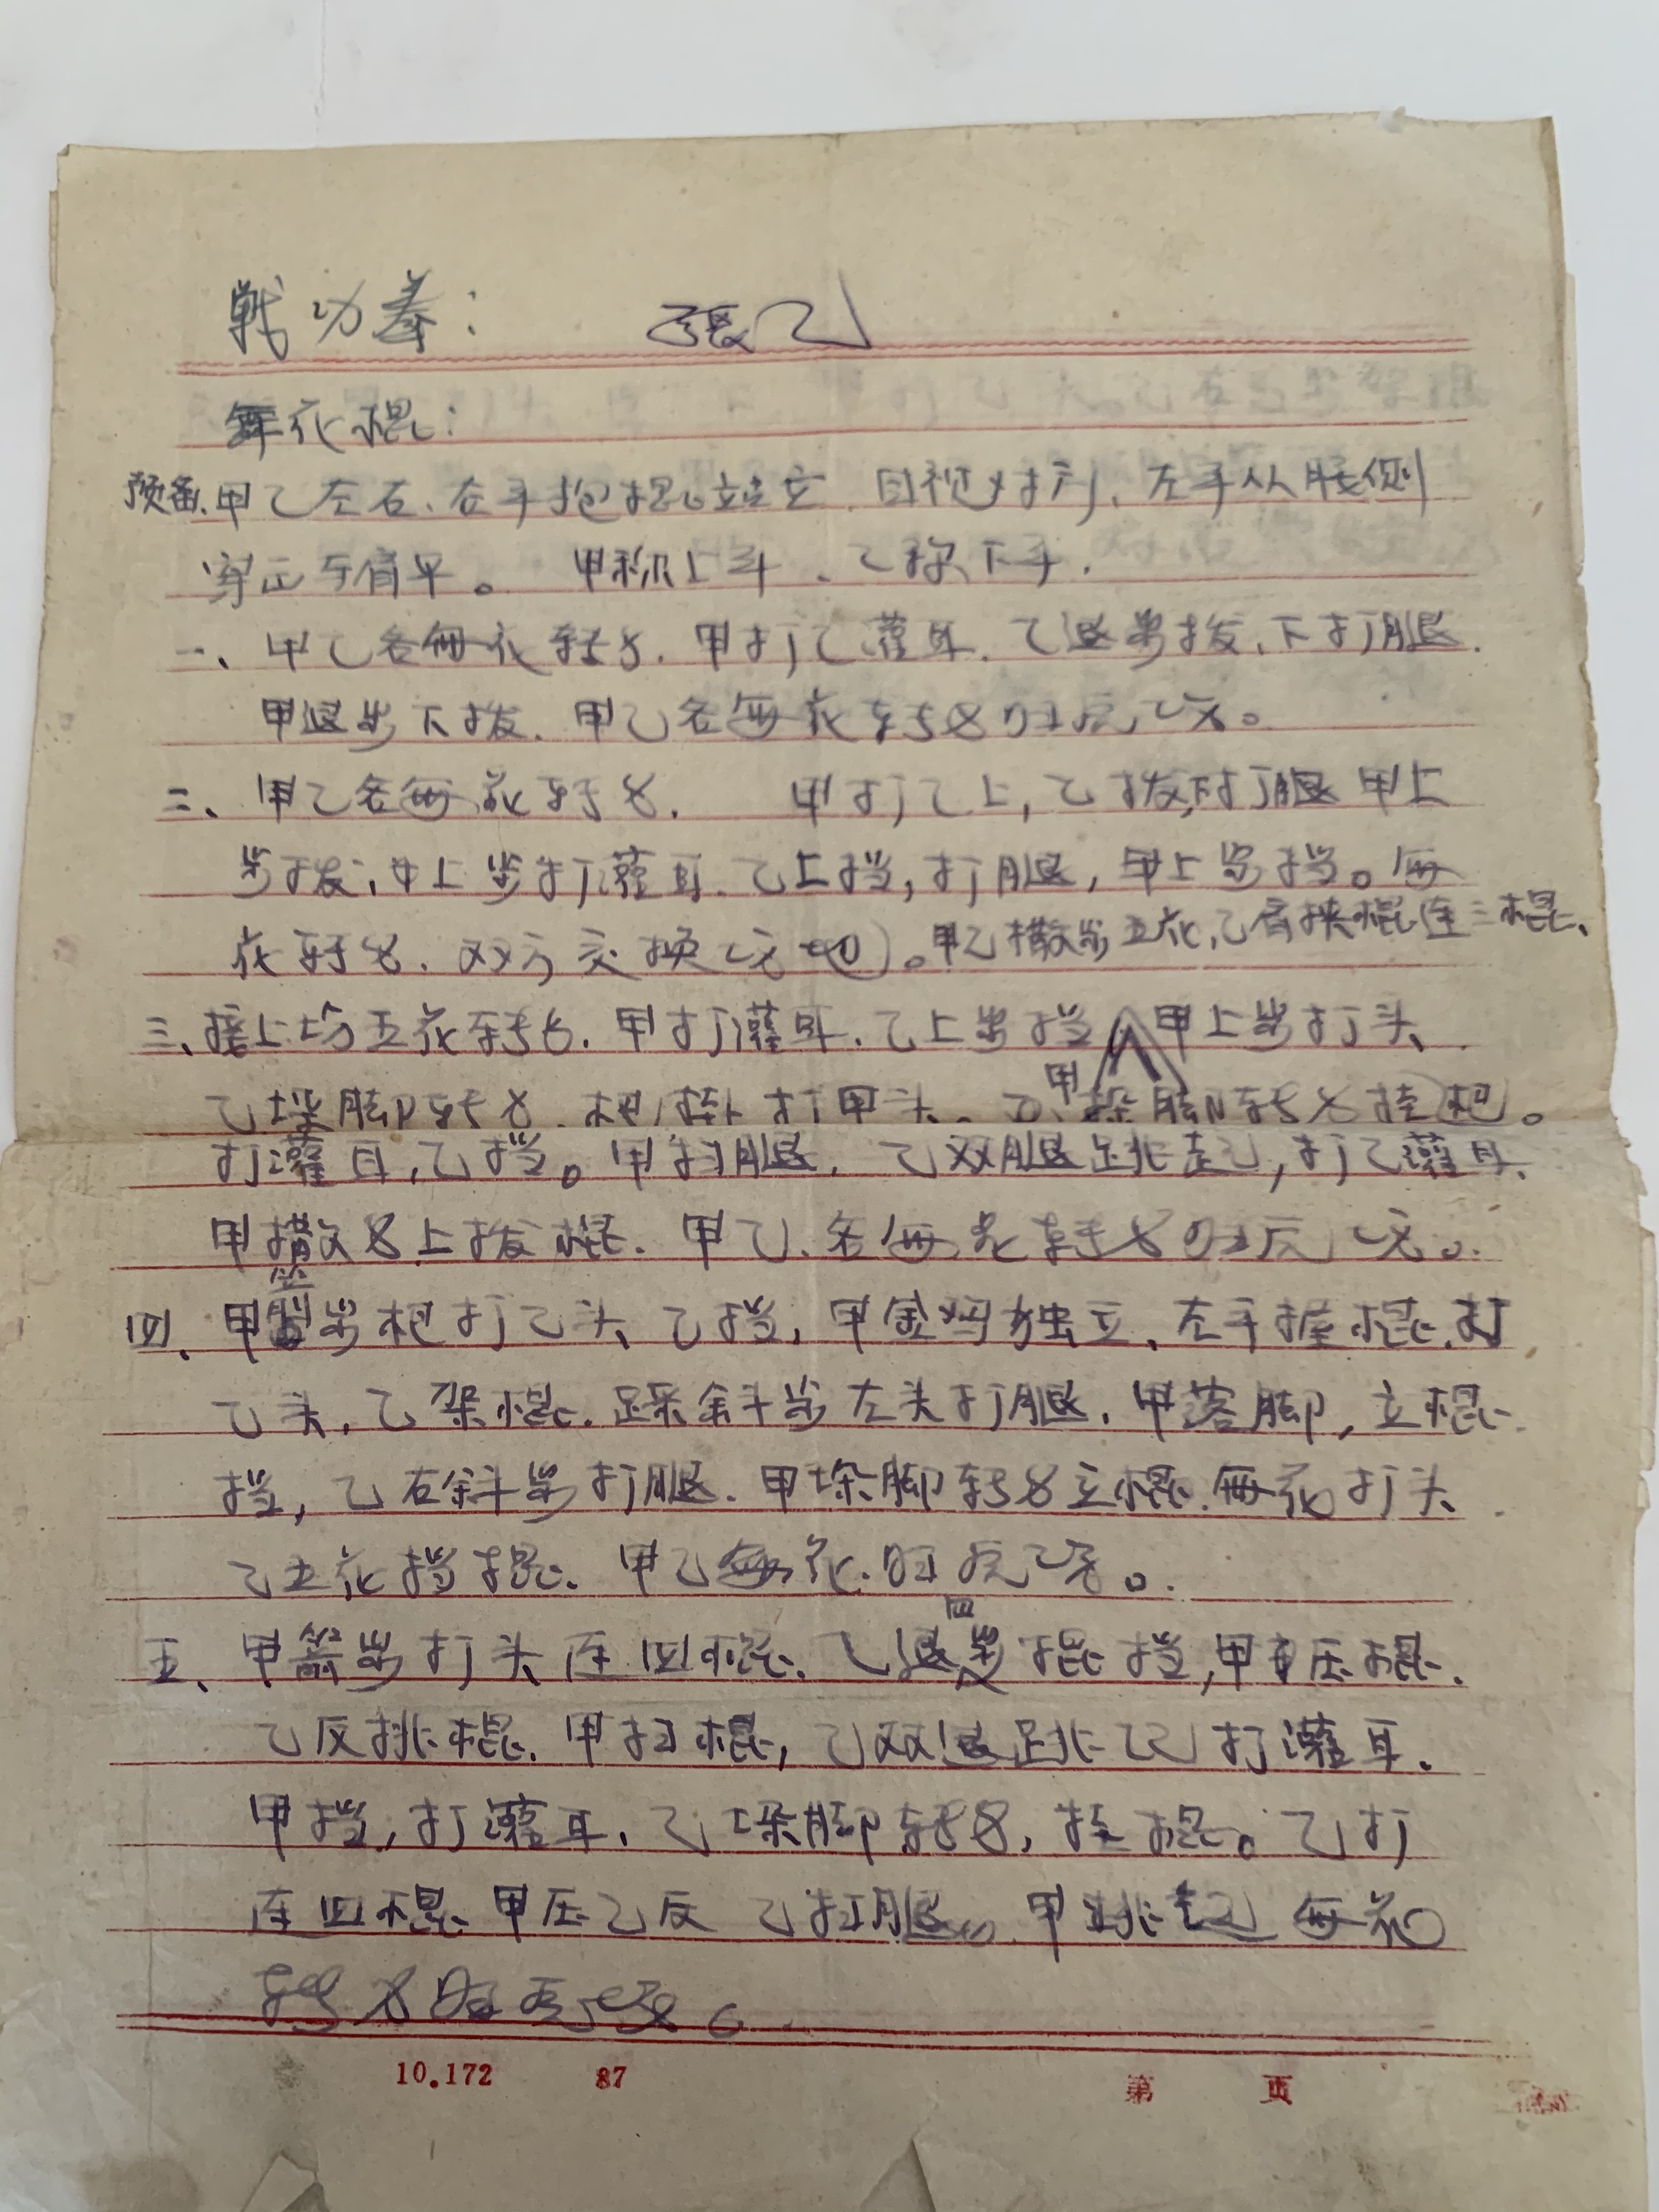 战功拳：
舞花棍：
预备、甲乙左右、右手抱棍站立、目视对方、左手从腰侧
穿出与肩平。甲称上手、乙称下手.
一、甲乙各舞花转身.甲打乙灌耳.乙退步拨、下打腿.
甲退步下拨.甲乙各舞花转身归原位。
二、甲乙各舞花转身.甲打乙上,乙拨,下打腿甲上
步拨,甲上步打灌耳、乙上挡,打腿,甲上步挡。舞
花转身.双方交换位地。甲乙撤步五花,乙肩挟棍连三棍、
三、接上场五花转身.甲打灌耳.乙上步挡甲上步打头
乙垛脚转身.把挂打甲头。甲垛脚转身挂把。
打灌耳,乙挡。甲扫腿.乙双腿跳起,打乙灌耳、
甲撤身上拨棍.甲乙.各舞花转身归原位。
四、甲箭步把打乙头、乙挡,甲金鸡独立、左手握棍.打
乙头,乙架棍.踩斜步左头打腿.甲落脚,立棍
挡,乙右斜步打腿.甲垛脚转身立棍.舞花打头
乙五花挡棍.甲乙舞花.归原位。
五、甲箭步打头连四棍.乙退四步棍挡,甲压棍.
乙反挑棍.甲扫棍,乙双退跳起打灌耳.
甲挡,打灌耳.乙垛脚转身,挂棍。乙打
连四棍甲压乙反乙扫腿.甲跳起舞花
转身归原位。
10.172 87 第 页